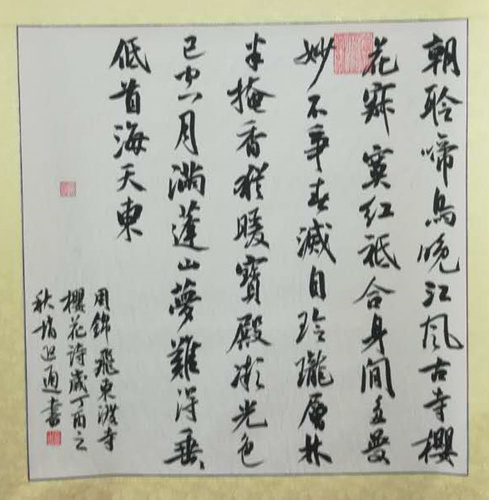 朝聆啼鳥晚江風古寺櫻
花寂寞紅祗合身閒至愛
妙不爭春減自玲瓏層林
半掩香猶暖寶殿凝光色
已空一月滿蓬山夢難得垂
低首海天東
周錦飛東渡寺
櫻花詩歲丁酉之
秋 通書